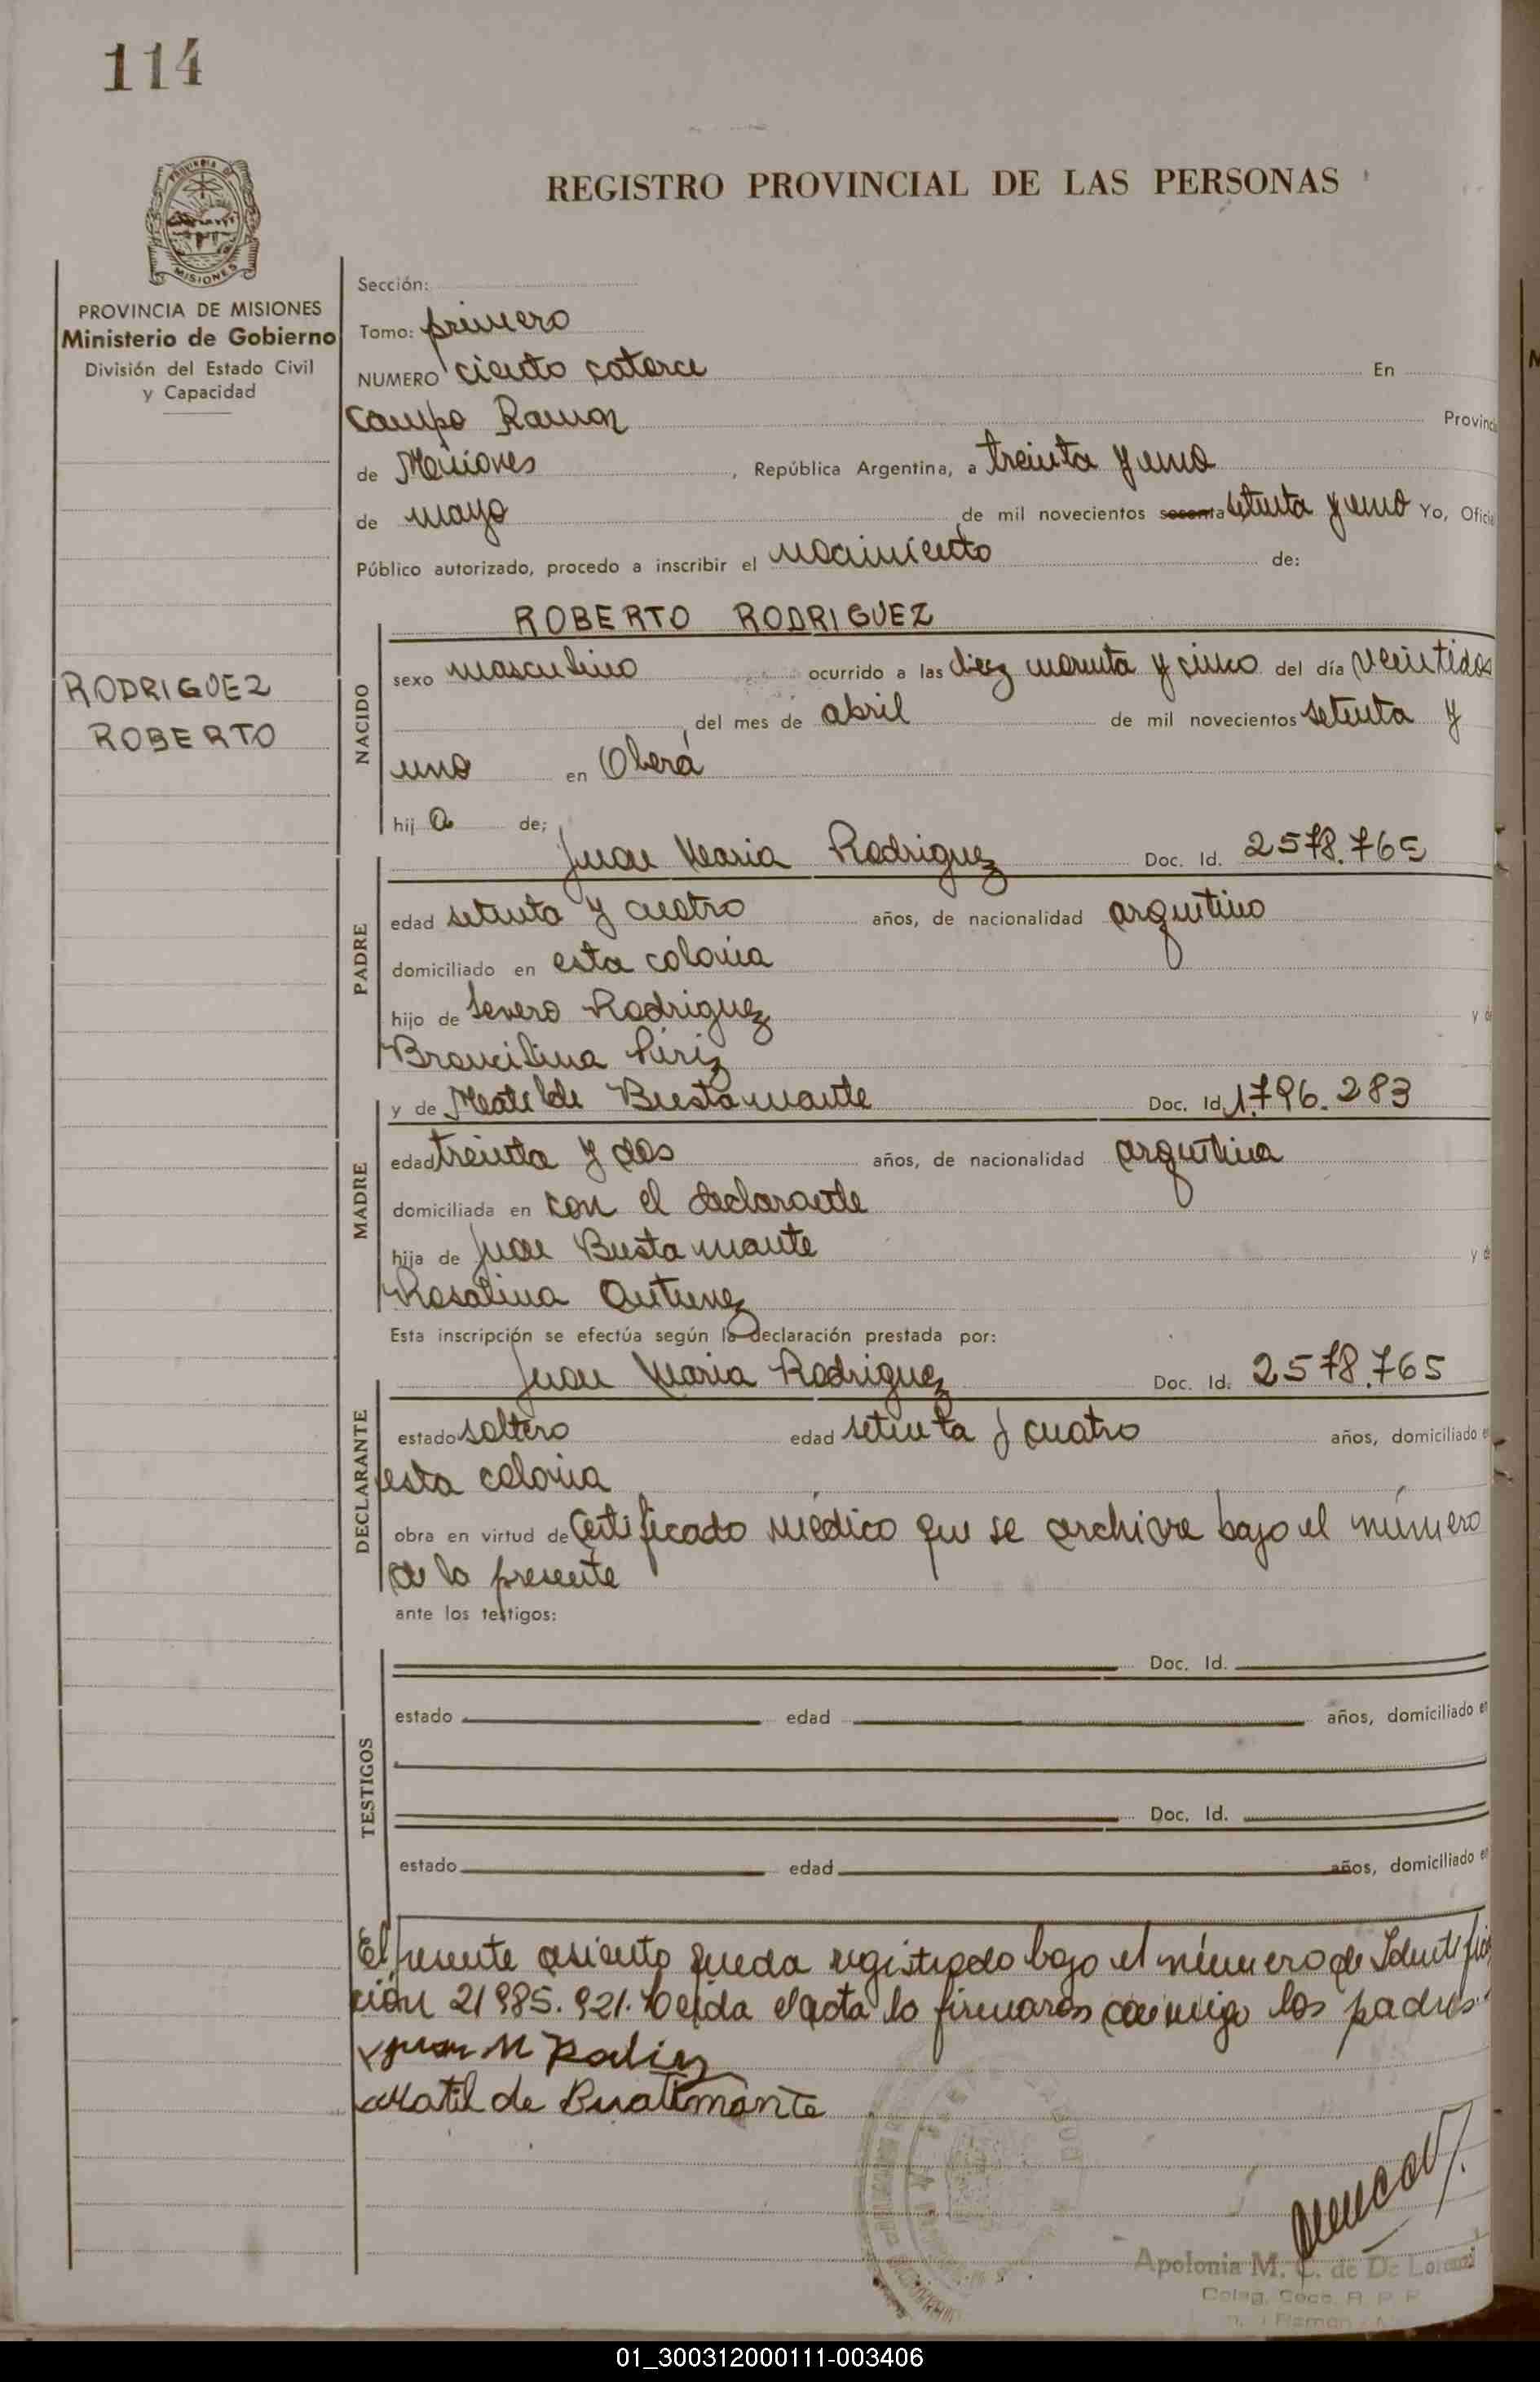 114
REGISTRO PROVINCIAL DE LAS PERSONAS
PROVINCIA DE
MISIONES
PROVINCIA DE MISIONES
Ministerio de Gobierno
División del Estado Civil
y Capacidad
RODRIGUEZ
ROBERTO
Sección:
Tomo: primero
NUMERO ciento catorce En
Campo Ramon Provincia
de Misiones, República Argentina, a treinta y uno
de mayo de mil novecientos sesenta setenta y uno Yo, Oficial
Público autorizado, procedo a inscribir el nacimiento de:
NACIDO
ROBERTO RODRIGUEZ
sexo masculino ocurrido a las diez cuarenta y cinco del día veintidos
del mes de abril de mil novecientos setenta y
uno en Oberá
hij o de;
PADRE
Juan Maria Rodriguez Doc. Id. 2578.765
edad setenta y cuatro años, de nacionalidad argentino
domiciliado en esta colonia
hijo de Severo Rodriguez y de
Brancilina Píriz
MADRE
y de Matilde Bustamante Doc. Id. 1.796.283
edad treinta y dos años, de nacionalidad argentina
domiciliada en con el declarante
hija de Juan Bustamante y de
Rosalina Antunez
Esta inscripción se efectúa según la declaración prestada por:
DECLARANTE
Juan Maria Rodriguez Doc. Id. 2578.765
estado soltero edad setenta y cuatro años, domiciliado en
esta colonia
obra en virtud de Certificado médico que se archiva bajo el número
de la presente
ante los testigos:
TESTIGOS
Doc. Id.
estado edad años, domiciliado en
Doc. Id.
estado edad años, domiciliado en
El presente asiento queda registrado bajo el número de Identifica
ción 21985.921. Leída el acta la firmaron conmigo los padres.
Juan M Rodriez
Matilde Bustamante
Apolonia M. C. de De Lorenzi
R. P. P.
Ramon
01_300312000111-003406